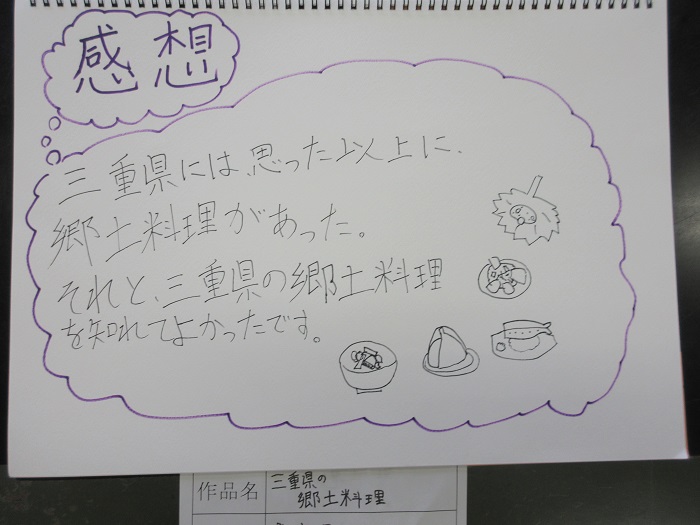 感想
三重県には、思った以上に、
郷土料理があった。
それと、三重県の郷土料理
を知れてよかったです。
作品名
三重県の
郷土料理